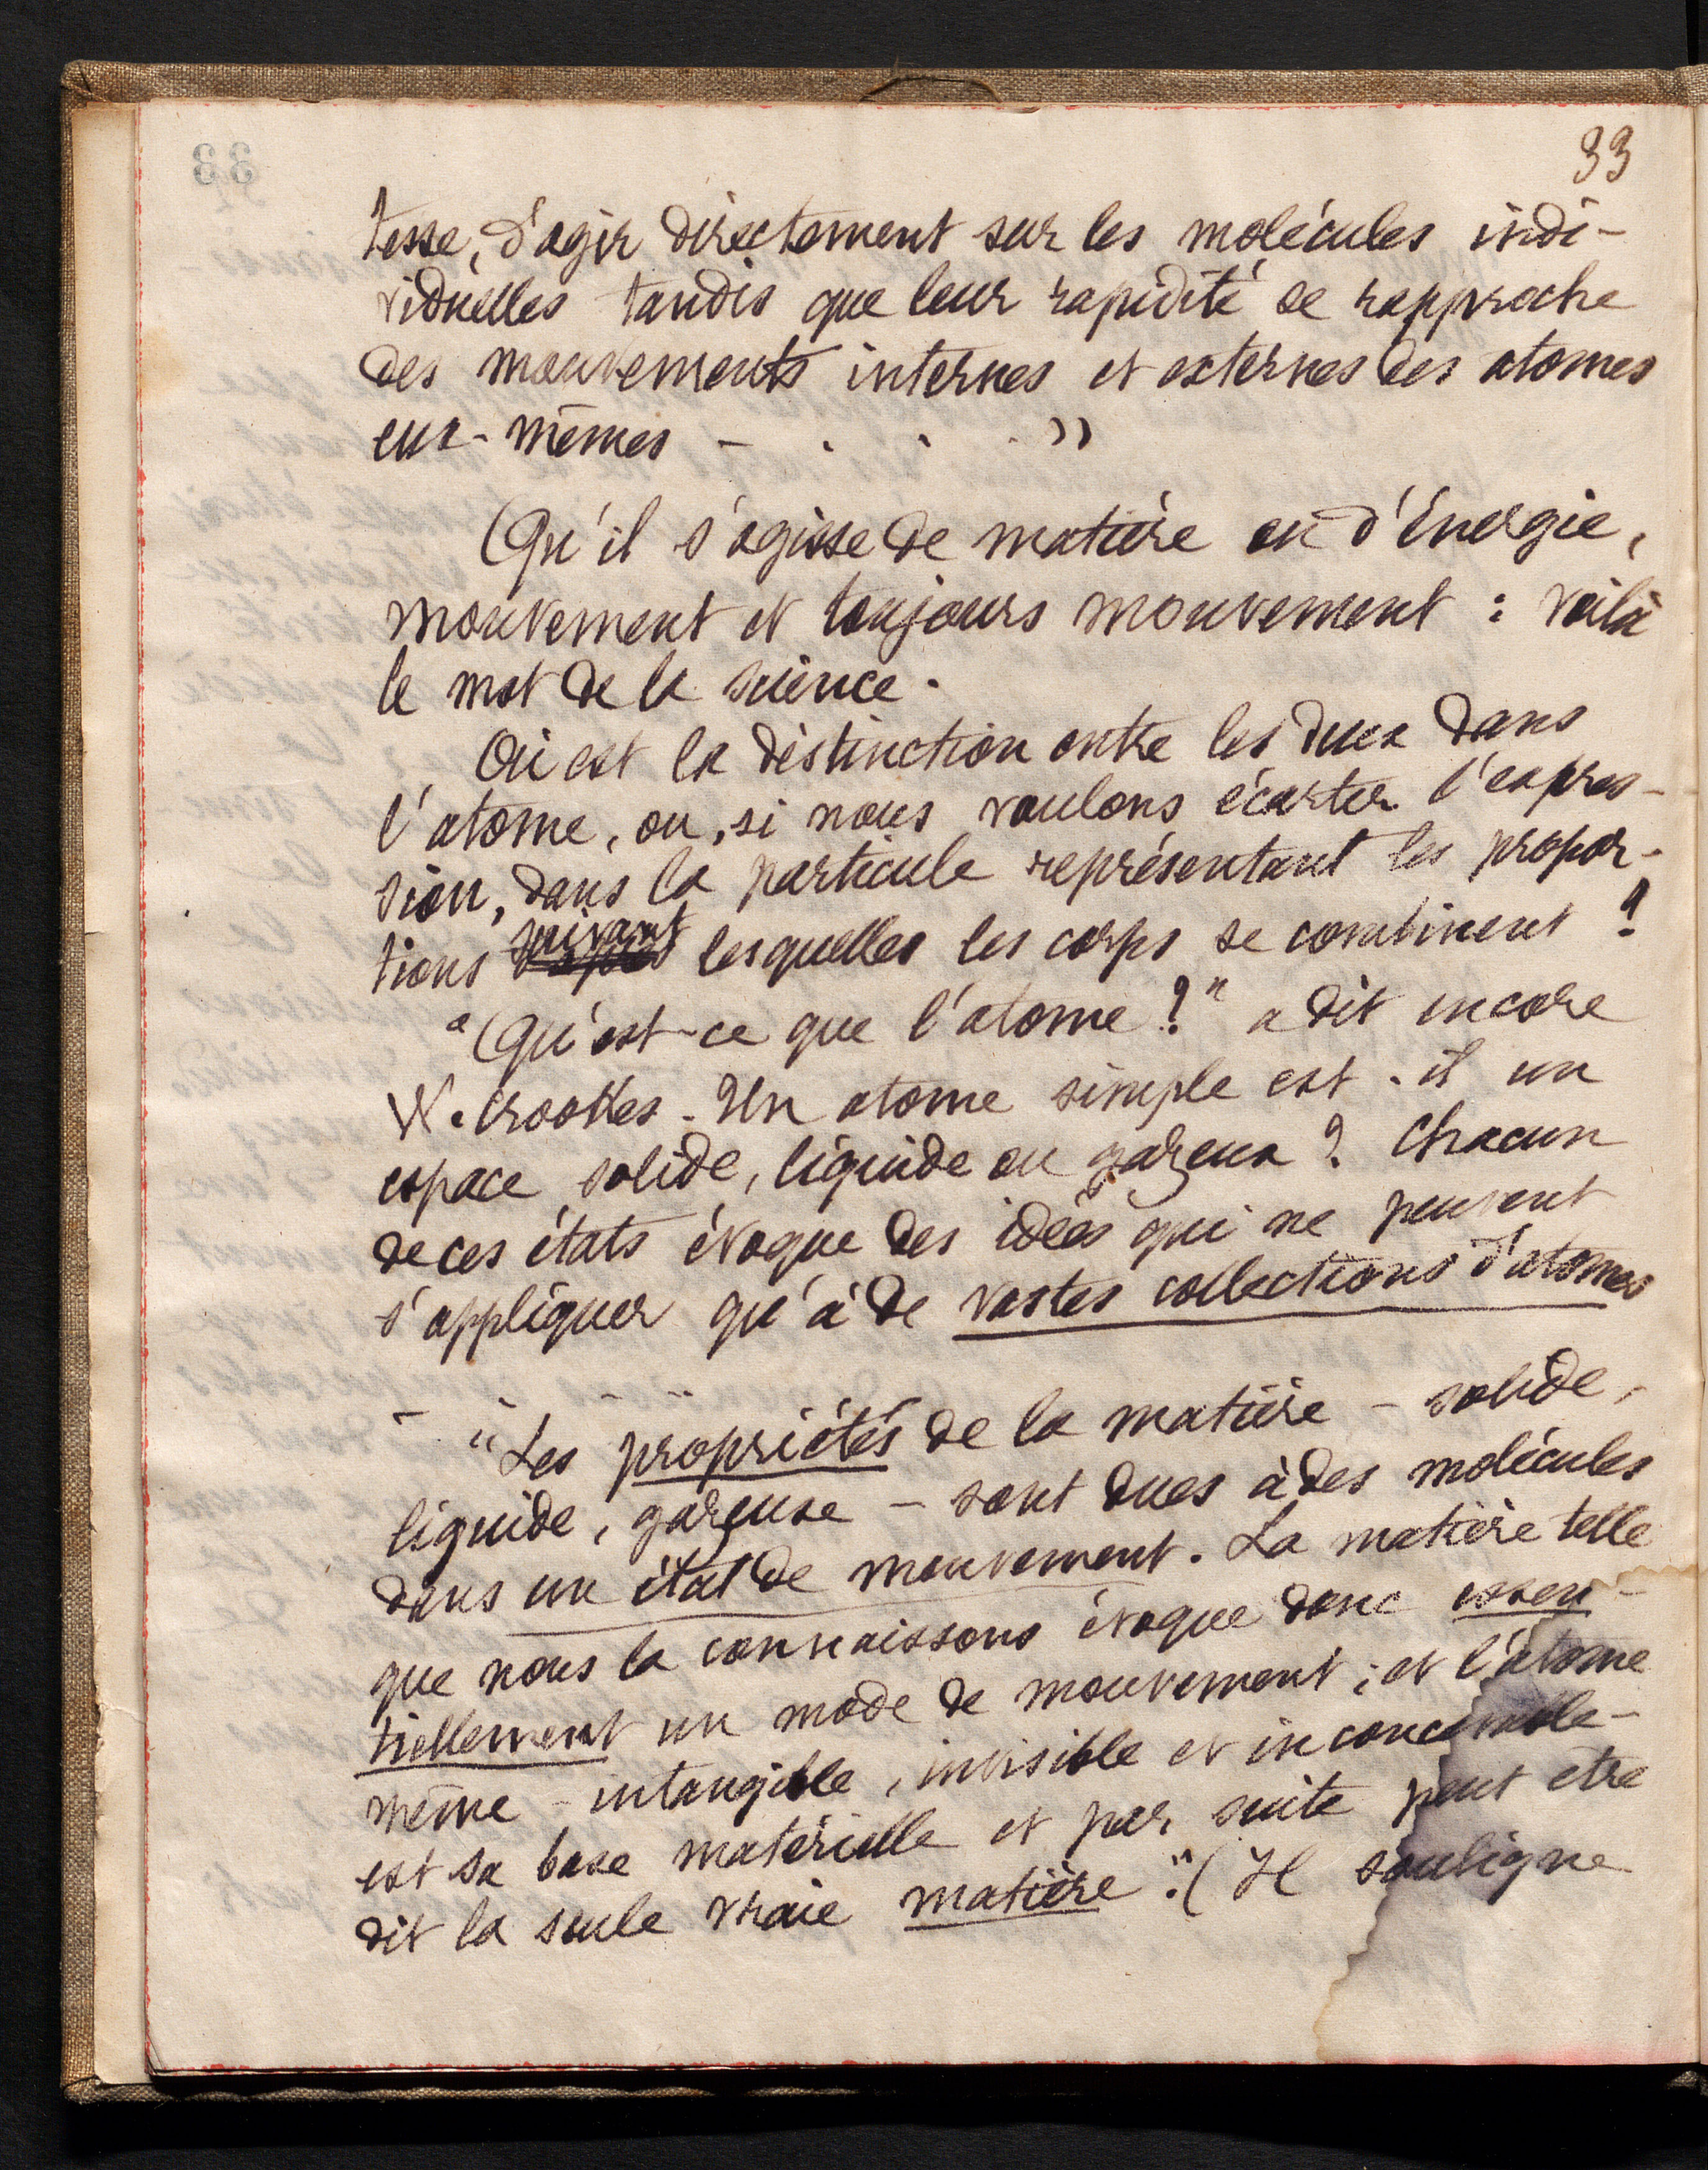 33
tesse, d'agir directement sur les molécules indi-
viduelles tandis que leur rapidité se rapproche
des mouvements internes et externes des atomes
eux-mêmes - . . . »
Qu'il s'agisse de matière ou d'Énergie,
mouvement et toujours mouvement : voilà
le mot de la science.
Où est la distinction entre les deux dans
l'atome, ou, si nous voulons écarter l'expres-
sion, dans la particule représentant les propor-
tions suivant lesquelles les corps se combinent ?
"Qu'est-ce que l'atome ?" a dit encore
W. Crookes. Un atome simple est-il un
espace solide, liquide ou gazeux ? Chacun
de ces états évoque des idées qui ne peuvent
s'appliquer qu'à de vastes collections d'atomes
"Les propriétés de la matière - solide,
liquide, gazeuse - sont dues à des molécules
dans un état de mouvement. La matière telle
que nous la connaissons évoque donc essen-
tiellement un mode de mouvement ; et l'atome
même - intangible, invisible et inconcevable -
est sa base matérielle et par suite peut être
dit la seule vraie matière". (Il souligne